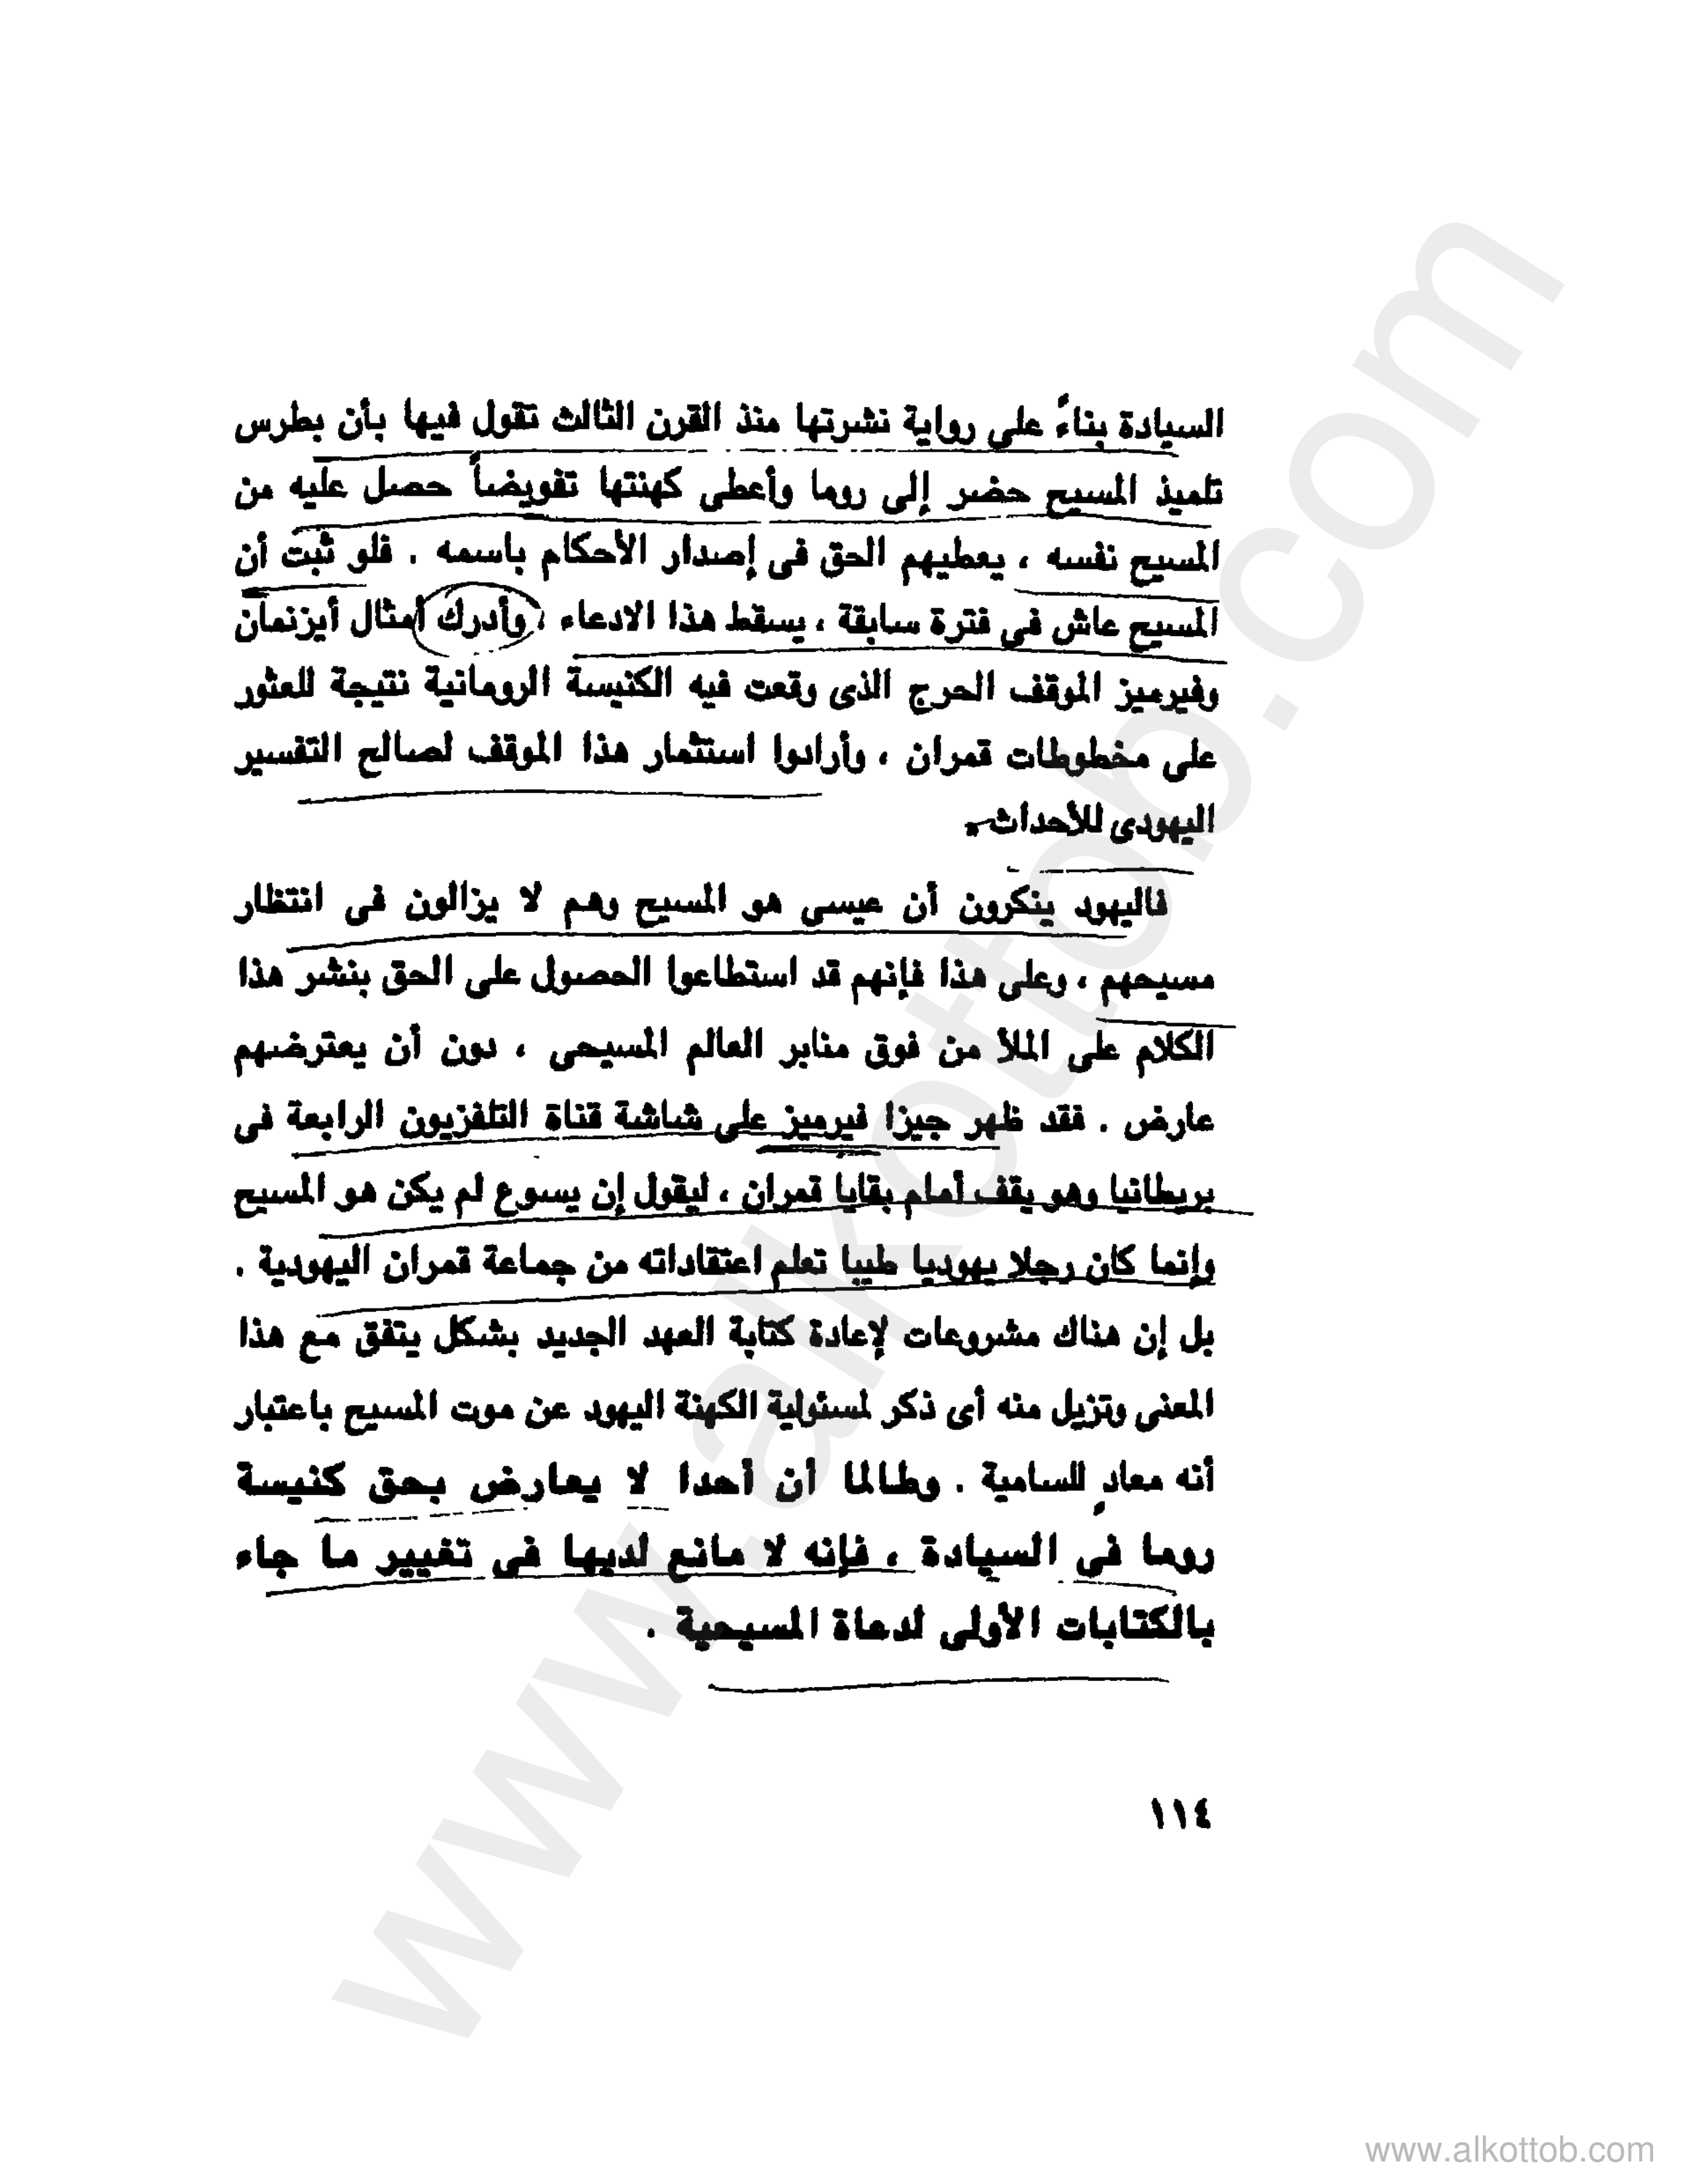 السيادة بناءً على رواية نشرتها منذ القرن الثالث تقول فيها بأن بطرس
تلميذ المسيح حضر إلى روما وأعطى كهنتها تفويضاً حصل عليه من
المسيح نفسه ، يعطيهم الحق فى إصدار الأحكام باسمه . فلو ثبت أن
المسيح عاش فى فترة سابقة ، يسقط هذا الادعاء ، وأدرك أمثال أيزنمان
وفيرميز الموقف الحرج الذى وقعت فيه الكنيسة الرومانية نتيجة للعثور
على مخطوطات قمران ، وأرادوا استثمار هذا الموقف لصالح التفسير
اليهودى للأحداث .
فاليهود ينكرون أن عيسى هو المسيح وهم لا يزالون فى انتظار
مسيحهم ، وعلى هذا فإنهم قد استطاعوا الحصول على الحق بنشر هذا
الكلام على الملأ من فوق منابر العالم المسيحى ، دون أن يعترضهم
عارض . فقد ظهر جيزا فيرميز على شاشة قناة التلفزيون الرابعة فى
بريطانيا وهو يقف أمام بقايا قمران ، ليقول إن يسوع لم يكن هو المسيح
وإنما كان رجلا يهوديا طيبا تعلم اعتقاداته من جماعة قمران اليهودية .
بل إن هناك مشروعات لإعادة كتابة العهد الجديد بشكل يتفق مع هذا
المعنى وتزيل منه أى ذكر لمسئولية الكهنة اليهود عن موت المسيح باعتبار
أنه معادٍ للسامية . وطالما أن أحدا لا يعارض بحق كنيسة
روما فى السيادة ، فإنه لا مانع لديها فى تغيير ما جاء
بالكتابات الأولى لدعاة المسيحية .
١١٤
www.alkottob.com
www.alkottob.com